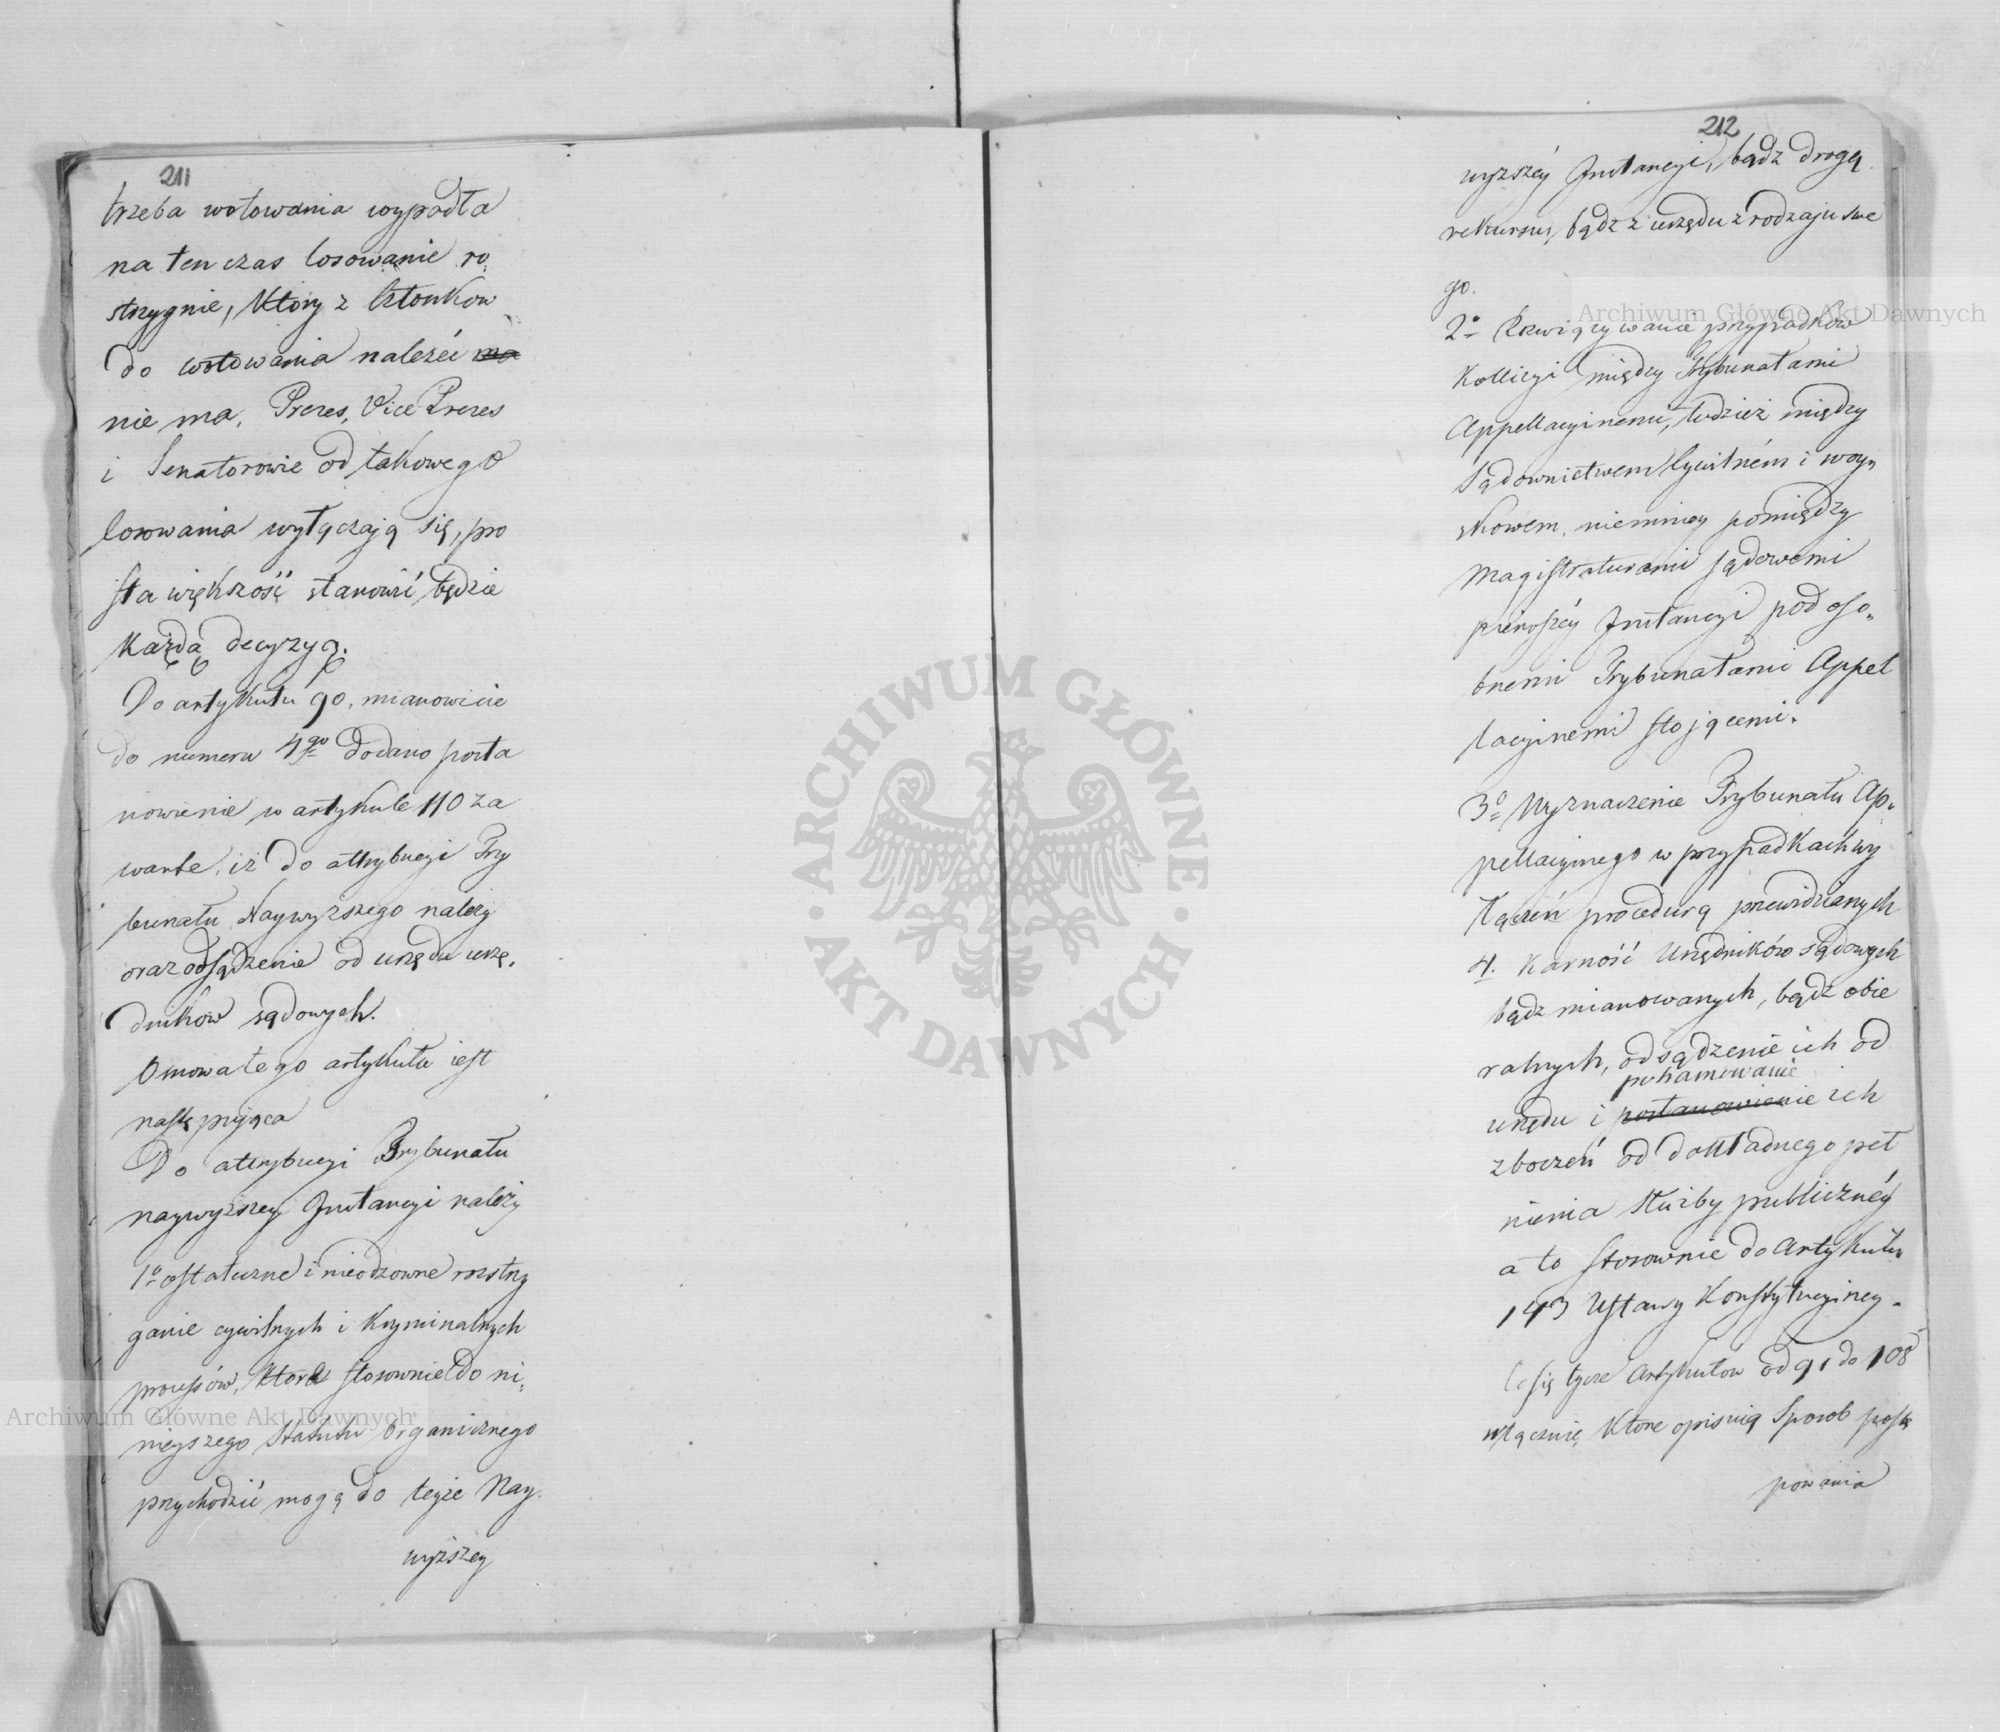 211
trzeba wotowania wypadła
na ten czas losowanie ro„
strzygnie, który z Członkow
do wotowania należeć ma
nie ma, Prezes, Vice Prezes
i Senatorowie od takowego
losowania wyłączają się, pro
sta większość stanowić będzie
każdą decyzyą.
Do artykułu 90, mianowicie
do numeru 4go dodano posta
nowienie w artykule 110 za
warte, iż do attrybucyi Try
bunału Naywyższego należy
oraz odsądzenie od urzędu urzę„
dników sądowych.
Osnowa tego artykułu iest
następuiąca
Do attrybucyi Trybunału
naywyższey Instancyi należy
1o ostateczne i nieodzowne rozstrzy
ganie cywilnych i kryminalnych
processów, które stosownie do ni„
nieyszego Statutu Organicznego
przychodzić mogą do teyże Nay„
wyższey
212
wyższéy Instancyi, bądz drogą
rekursu, bądz z urzędu z rodzaju swe
go.
2o Rozwiązywanie przypadków
Kollizyi między Trybunałami
Appellacyinemi, tudzież między
Sądownictwem Cywilném i woy„
skowem, niemniey pomiędzy
Magistraturami sądowemi
pierwszéy Instancyi pod oso„
bnemi Trybunałami Appel
lacyinemi stojącemi.
3o Wyznaczenie Trybunału Ap„
pellacyinego w przypadkach wy
łączeń procedurą przewidzianych
4. Karność Urzędników sądowych
bądz mianowanych, bądz obie
ralnych, odsądzenie ich od
pohamowanie
urzędu i postanowienie ich
zboczeń od dokładnego peł
nienia służby publicznéy
a to stosownie do Artykułu
143 Ustawy Konstytucyiney.
Co się tycze Artykułow od 91 do 108
włącznie, które opisuią Sposob postę
powania
Archiwum Główne Akt Dawnych
Archiwum Główne Akt Dawnych
ARCHIWUM GŁÓWNE · AKT DAWNYCH ·